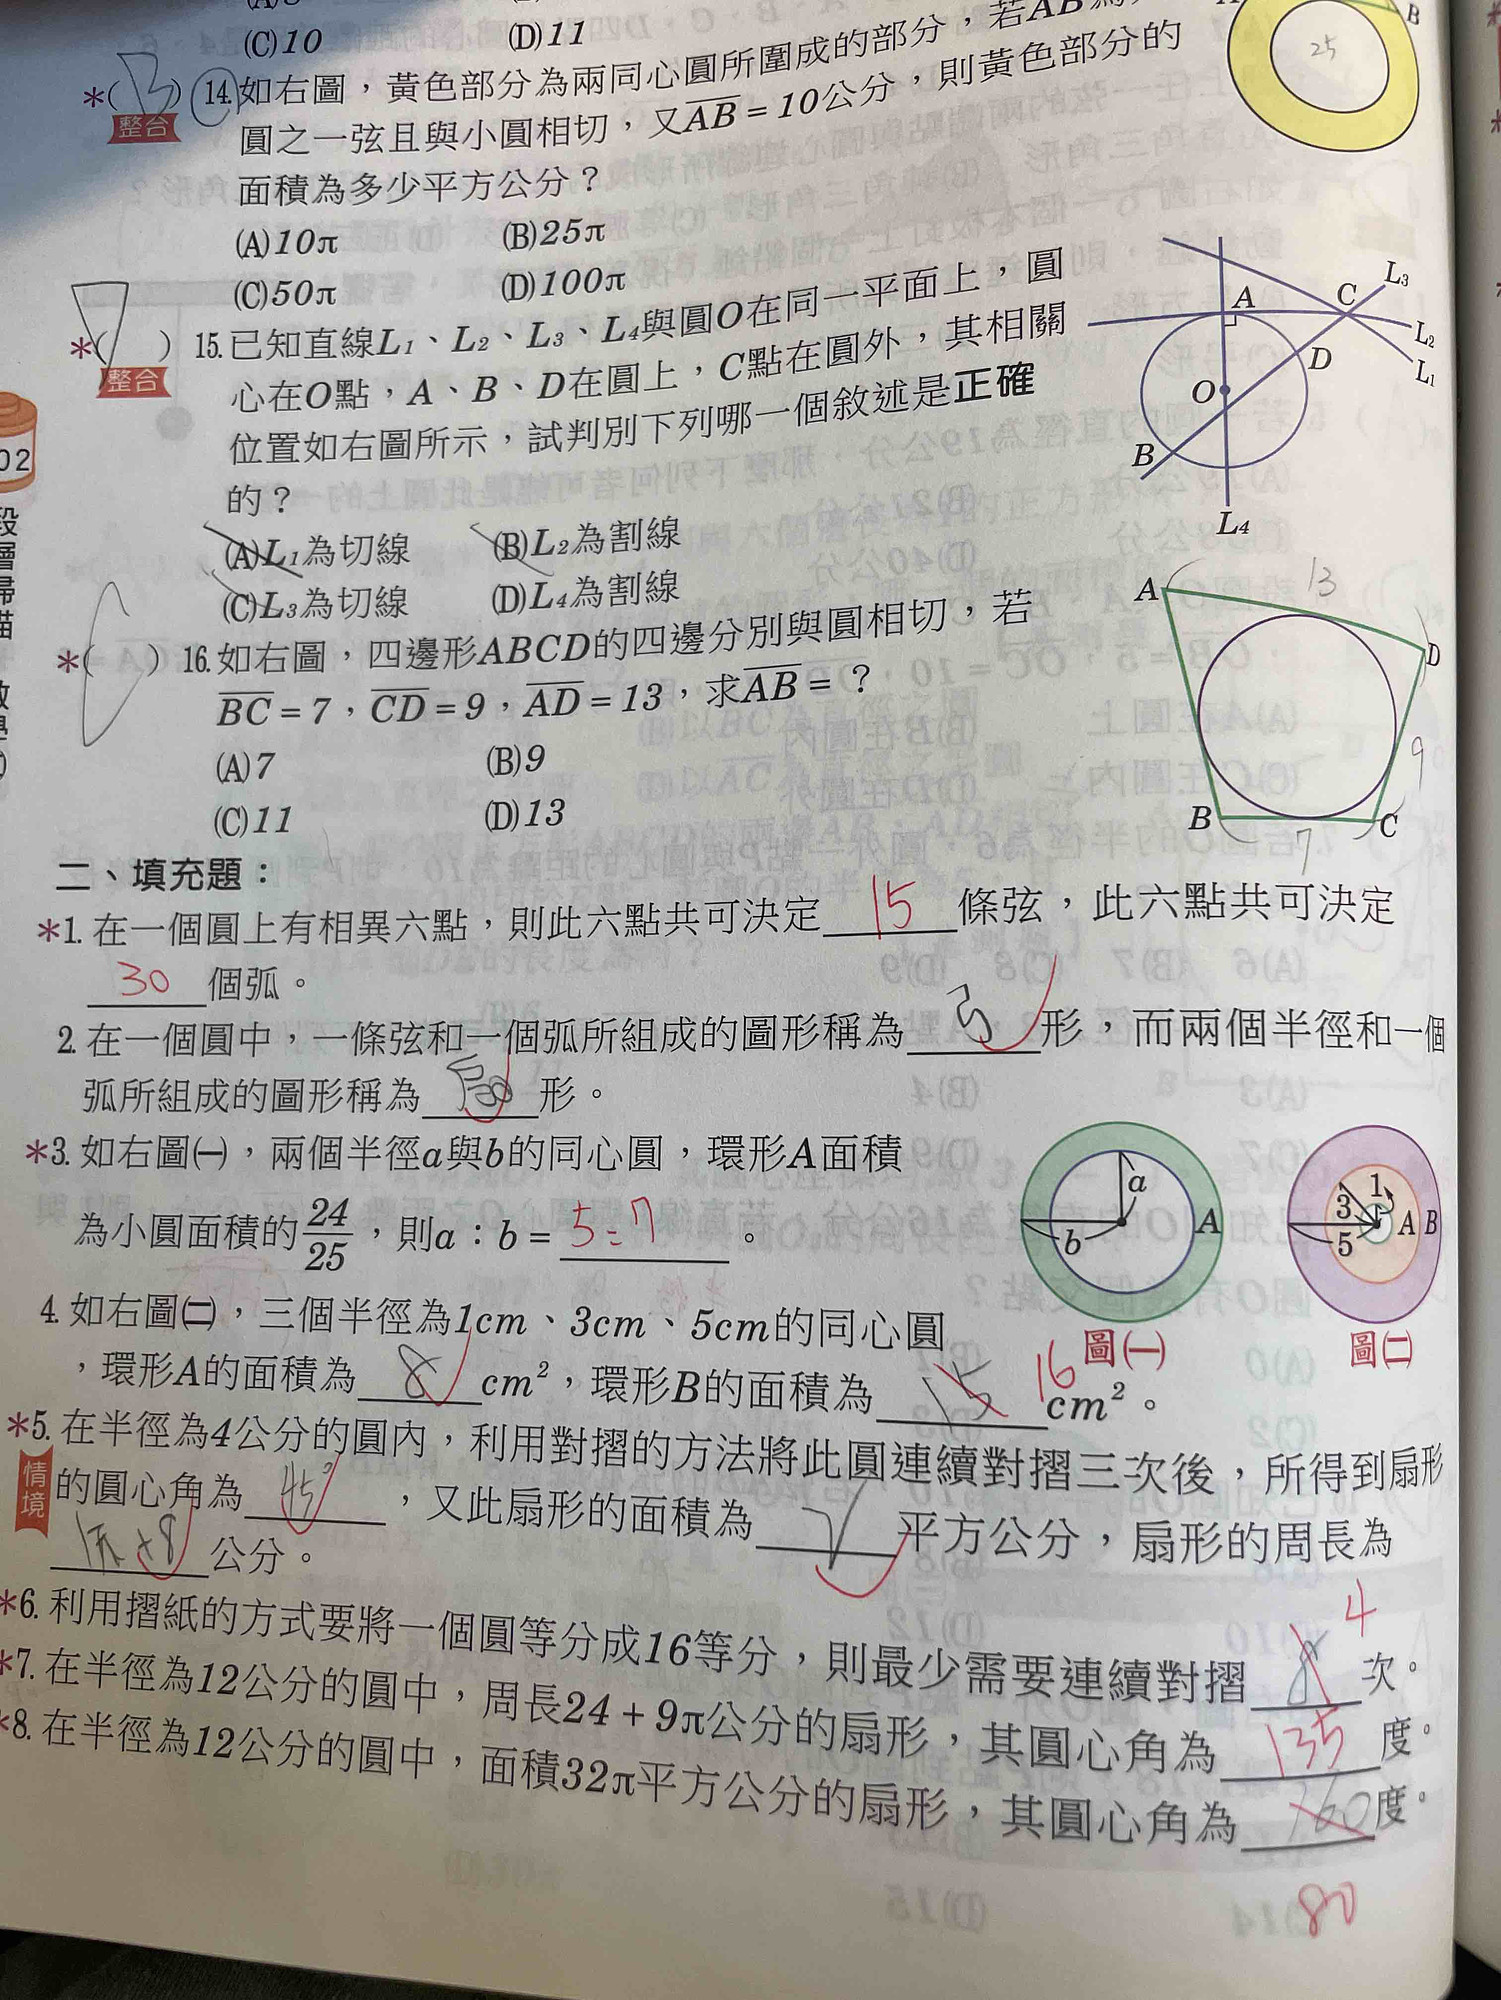 (C)10 (D)11
*( B ) 14.如右圖，黃色部分為兩同心圓所圍成的部分，若AB
整合
圓之一弦且與小圓相切，又AB=10公分，則黃色部分的
面積為多少平方公分？
(A)10π (B)25π
(C)50π (D)100π
B
25
*( D ) 15.已知直線L1、L2、L3、L4與圓O在同一平面上，圓
整合
心在O點，A、B、D在圓上，C點在圓外，其相關
位置如右圖所示，試判別下列哪一個敘述是正確
的？
(A)L1為切線 (B)L2為割線
(C)L3為切線 (D)L4為割線
A C L3
L2
D L1
O
B
L4
02
*( C ) 16.如右圖，四邊形ABCD的四邊分別與圓相切，若
BC=7，CD=9，AD=13，求AB=？
(A)7 (B)9
(C)11 (D)13
A 13
D
9
B 7 C
二、填充題：
*1. 在一個圓上有相異六點，則此六點共可決定 15 條弦，此六點共可決定
30 個弧。
2. 在一個圓中，一條弦和一個弧所組成的圖形稱為 弓 形，而兩個半徑和一個
弧所組成的圖形稱為 扇 形。
*3. 如右圖㈠，兩個半徑a與b的同心圓，環形A面積
為小圓面積的24/25，則a：b= 5:7 。
a b A
圖㈠
1 3 5 A B
圖㈡
4. 如右圖㈡，三個半徑為1cm、3cm、5cm的同心圓
，環形A的面積為 8 cm²，環形B的面積為 15 16 cm²。
*5. 在半徑為4公分的圓內，利用對摺的方法將此圓連續對摺三次後，所得到扇形
情境
的圓心角為 45° ，又此扇形的面積為 平方公分，扇形的周長為
1π+8 公分。
*6. 利用摺紙的方式要將一個圓等分成16等分，則最少需要連續對摺 8 4 次。
*7. 在半徑為12公分的圓中，周長24+9π公分的扇形，其圓心角為 135 度。
*8. 在半徑為12公分的圓中，面積32π平方公分的扇形，其圓心角為 160 度。
80